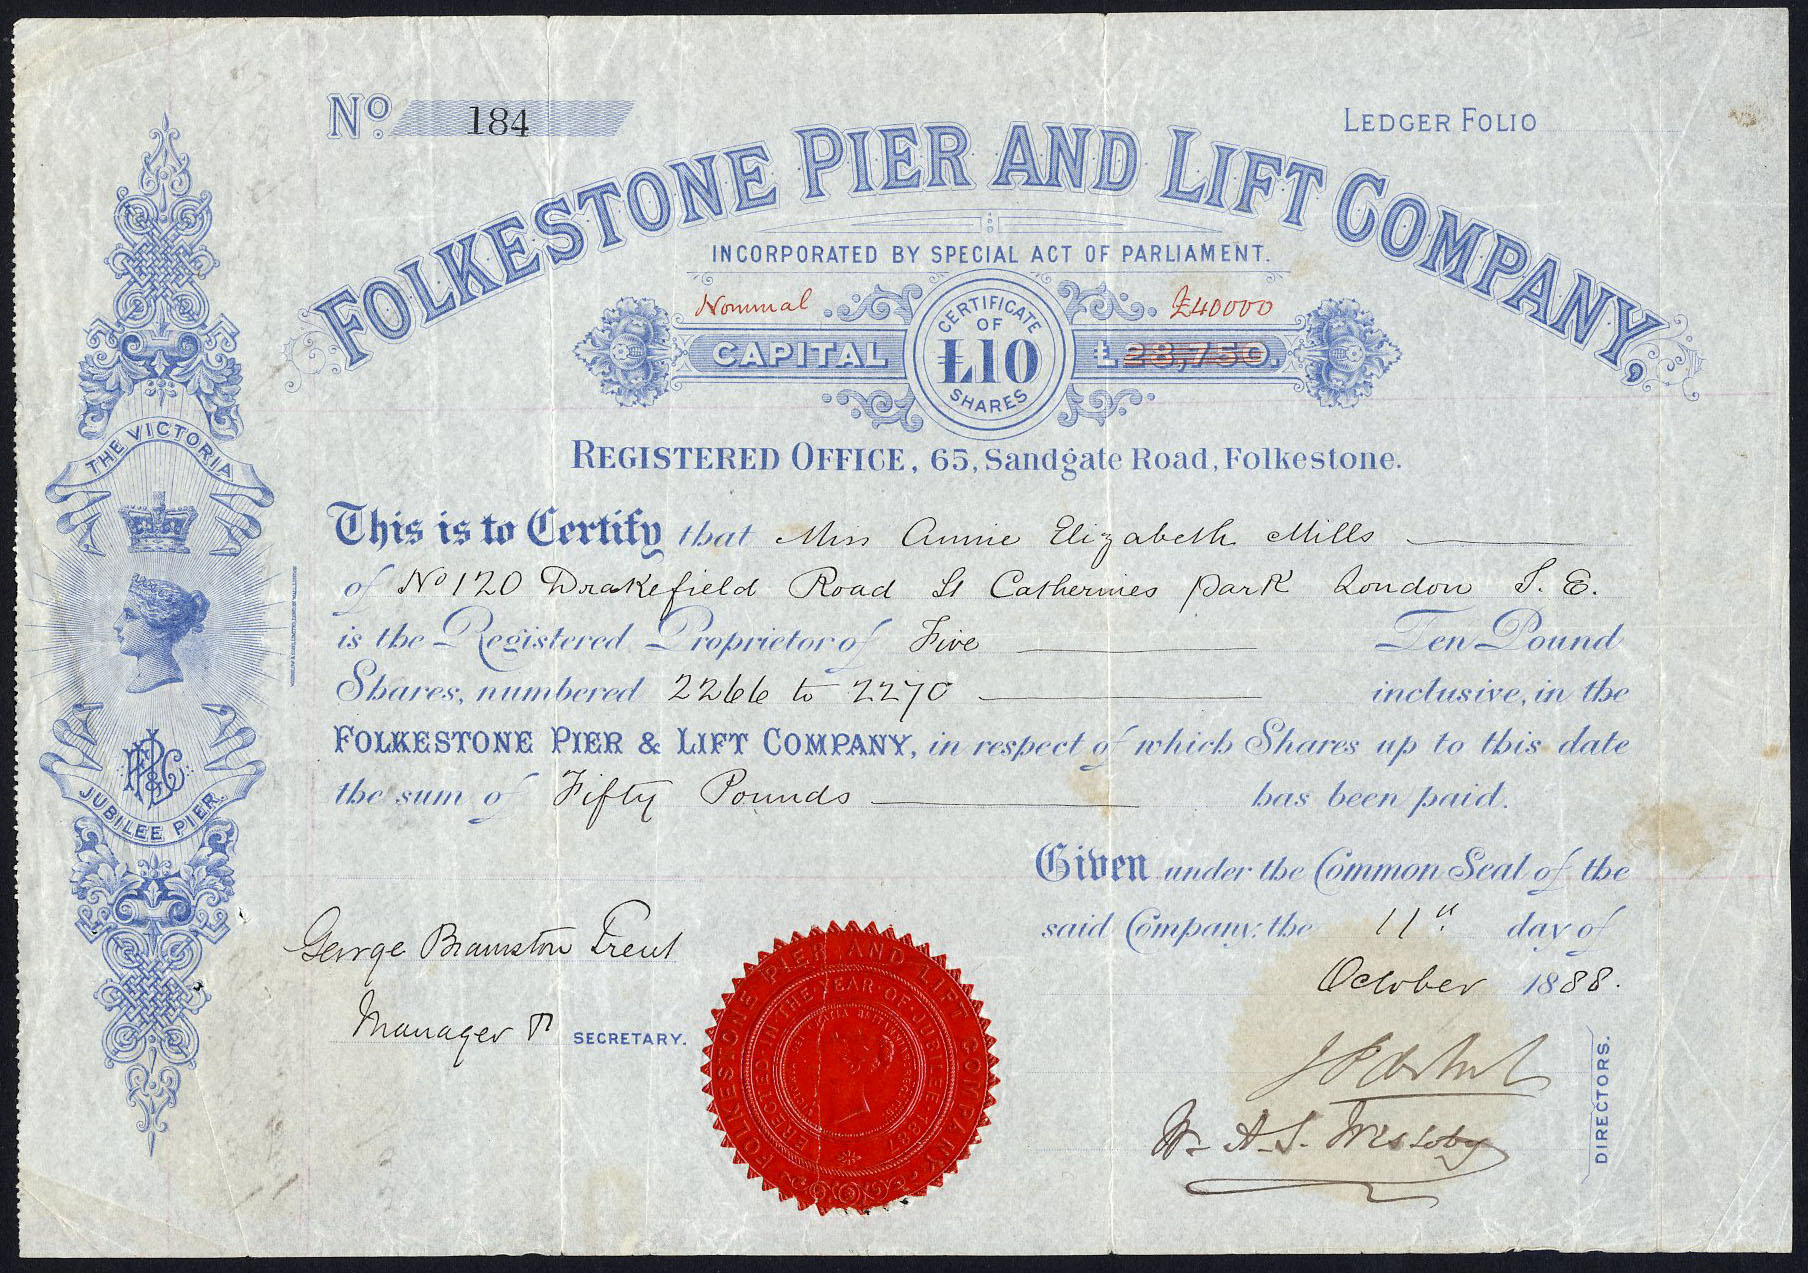 No. 184
LEDGER FOLIO
FOLKESTONE PIER AND LIFT COMPANY,
INCORPORATED BY SPECIAL ACT OF PARLIAMENT.
Nominal £40000
CAPITAL £28,750.
CERTIFICATE
OF
£10
SHARES
REGISTERED OFFICE, 65, Sandgate Road, Folkestone.
THE VICTORIA
JUBILEE PIER
This is to Certify that Miss Annie Elizabeth Mills
of No 120 Drakefield Road St Catherines Park London S. E.
is the Registered Proprietor of Five Ten Pound
Shares, numbered 2266 to 2270 inclusive, in the
FOLKESTONE PIER & LIFT COMPANY, in respect of which Shares up to this date
the sum of Fifty Pounds has been paid.
Given under the Common Seal of the
said Company, the 11th day of
October 1888.
George Bramston Trent
Manager & SECRETARY.
FOLKESTONE PIER AND LIFT COMPANY
ERECTED IN THE YEAR OF JUBILEE 1887
W. A. S.
DIRECTORS.